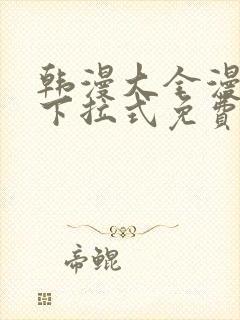 韩漫大全漫
下拉式免费
帝鲲